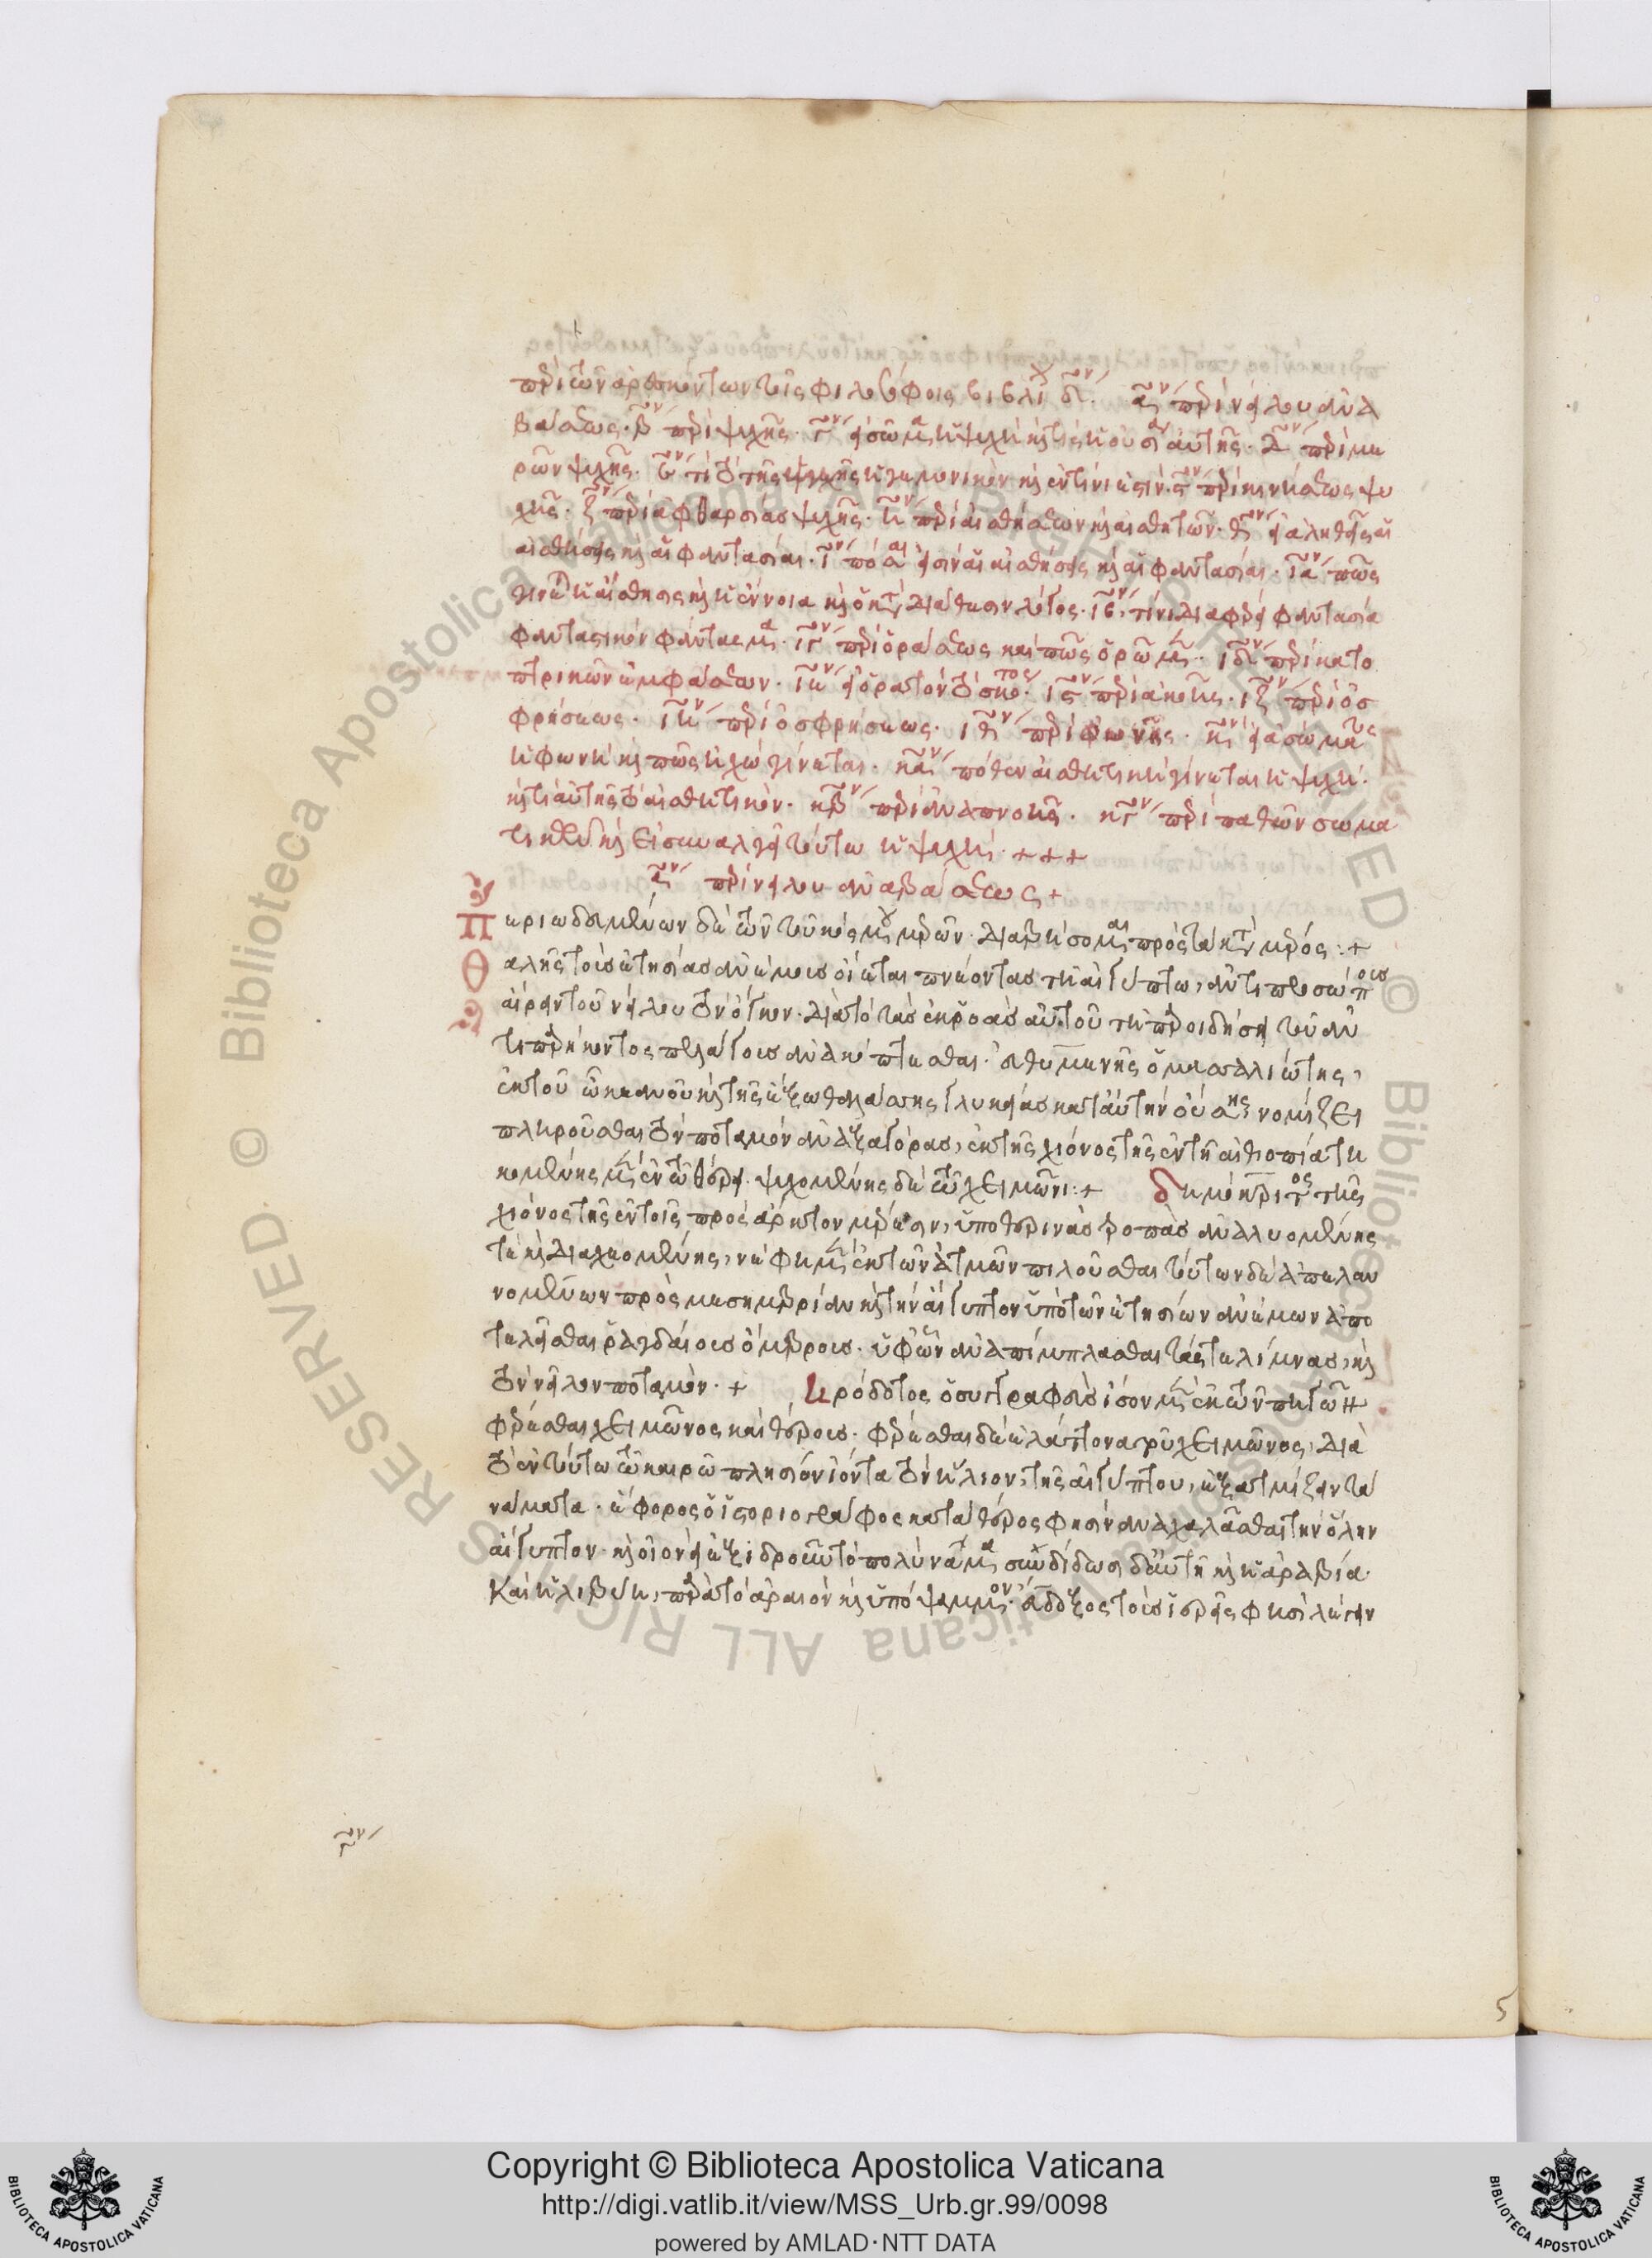 περὶ τῶν ἀρεσκόντων τοῖς φιλοσόφοις βιβλί δ. α περὶ νείλου ἀνα
βάσεως. β περὶ ψυχῆς. γ εἰ σῶμα ἡ ψυχὴ καὶ τίς ἡ οὐσία αὐτῆς. δ περὶ με
ρῶν ψυχῆς. ε τί τὸ τῆς ψυχῆς ἡγεμονικὸν καὶ ἐν τίνι ἐστίν. ς περὶ κινήσεως ψυ
χῆς. ζ περὶ ἀφθαρσίας ψυχῆς. η περὶ αἰσθήσεων καὶ αἰσθητῶν. θ εἰ ἀληθεῖς αἱ
αἰσθήσεις καὶ αἱ φαντασίαι. ι πόσαι εἰσὶν αἱ αἰσθήσεις καὶ αἱ φαντασίαι. ια πῶς
γίνεται ἡ αἴσθησις καὶ ἡ ἔννοια καὶ ὁ κατὰ διάθεσιν λόγος. ιβ τίνι διαφέρει φαντασία
φανταστικὸν φάντασμα. ιγ περὶ ὁράσεως καὶ πῶς ὁρῶμεν. ιδ περὶ κατο
πτρικῶν ἐμφάσεων. ιε εἰ ὁρατὸν τὸ σκότος. ις περὶ ἀκοῆς. ιζ περὶ ὀσ
φρήσεως. ιη περὶ ὀσφρήσεως. ιθ περὶ φωνῆς. κ εἰ ἀσώματος
ἡ φωνὴ καὶ πῶς ἠχὼ γίνεται. κα πόθεν αἰσθητικὴ γίνεται ἡ ψυχή.
καὶ τί αὐτῆς τὸ αἰσθητικόν. κβ περὶ ἀναπνοῆς. κγ περὶ παθῶν σωμα
τικῶν καὶ εἰ συναλγεῖ τούτω ἡ ψυχή. +++
α περὶ νείλου ἀναβάσεως +
Περιωδευμένων δὲ τῶν τοῦ κόσμου μερῶν. διαβήσομαι πρὸς τὰ κατὰ μέρος :+
Θαλῆς τοὺς ἐτησίας ἀνέμους οἴεται πνέοντας τῆ αἰγύπτω, ἀντιπροσώπους
αἴρειν τοῦ νείλου τὸν ὄγκον. διὰ τὸ τὰς ἐκροὰς αὐτοῦ τῆ παροιδήσει τοῦ ἀν
τιπαρήκοντος πελάγους ἀνακόπτεσθαι. εὐθυμένης ὁ μασσαλιώτης,
ἐκ τοῦ ὠκεανοῦ καὶ τῆς ἔξω θαλάσσης γλυκείας κατ αὐτὴν οὔσης νομίζει
πληροῦσθαι τὸν ποταμόν ἀναξαγόρας, ἐκ τῆς χιόνος τῆς ἐν τῆ αἰθιοπία τη
κομένης μὲν ἐν τῶ θέρει. ψυχομένης δὲ τῶ χειμῶνι :+ δημόκριτος τῆς
χιόνος τῆς ἐν τοῖς πρὸς ἄρκτον μέρεσιν, ὑπὸ θερινὰς τροπὰς ἀναλυομένης
τε καὶ διαχεομένης, νέφη μὲν ἐκ τῶν ἀτμῶν πιλοῦσθαι τούτων δὲ ἀπελαυ
νομένων πρὸς μεσημβρίαν καὶ τὴν αἴγυπτον ὑπὸ τῶν ἐτησίων ἀνέμων ἀπο
τελεῖσθαι ῥαγδαίους ὄμβρους. ὑφ ὧν ἀναπίμπλασθαι τάς τε λίμνας, καὶ
τὸν νεῖλον ποταμόν. + ἡρόδοτος ὁ συγγραφεὺς ἴσον μὲν ἐκ τῶν πηγῶν
φέρεσθαι χειμῶνος καὶ θέρους. φέρεσθαι δὲ ἐλάττονα τοῦ χειμῶνος, διὰ
τὸ ἐν τούτω τῶ καιρῶ πλησίον ἰόντα τὸν ἥλιον, τῆς αἰγύπτου, ἐξατμίζειν τὰ
νάματα. ἔφορος ὁ ἱστοριογράφος κατὰ θέρος φησὶν ἀναχαλᾶσθαι τὴν ὅλην
αἴγυπτον. καὶ οἱονεὶ ἐξιδροῦν τὸ πολὺ νᾶμα, συνδίδωσι δ αὐτῆ καὶ ἡ ἀραβία.
καὶ ἡ λιβύη, παρὰ τὸ ἀραιὸν καὶ ὑπόψαμμον. εὔδοξος τοὺς ἱερεῖς φησὶ λέγειν
5
Copyright © Biblioteca Apostolica Vaticana
http://digi.vatlib.it/view/MSS_Urb.gr.99/0098
powered by AMLAD·NTT DATA